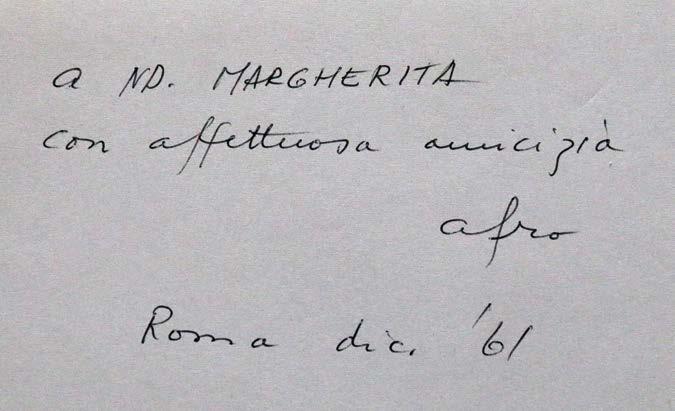 a ND. MARGHERITA
con affettuosa amicizia
afro
Roma dic. '61